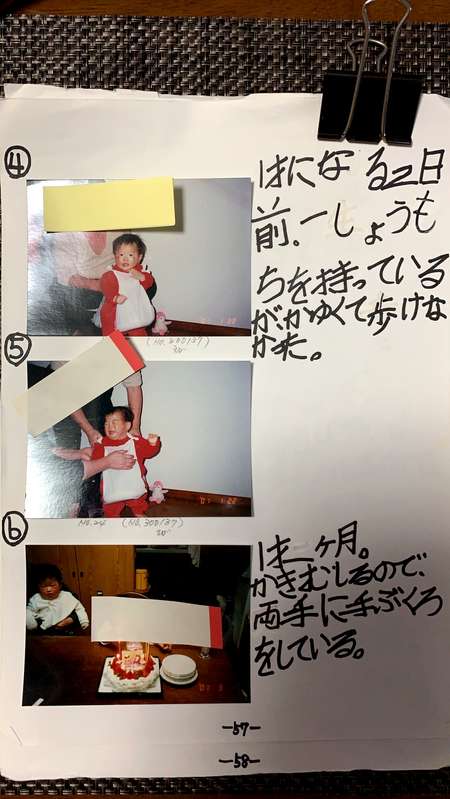 ④
1才になる2日
前.一しょうも
ちを持っている
がかゆくて歩けな
かった。
'01 1.22
⑤
'01 1.22
NO.24 (NO.300137)
⑥
1才一ヶ月。
かきむしるので、
両手に手ぶくろ
をしている。
-57-
-58-